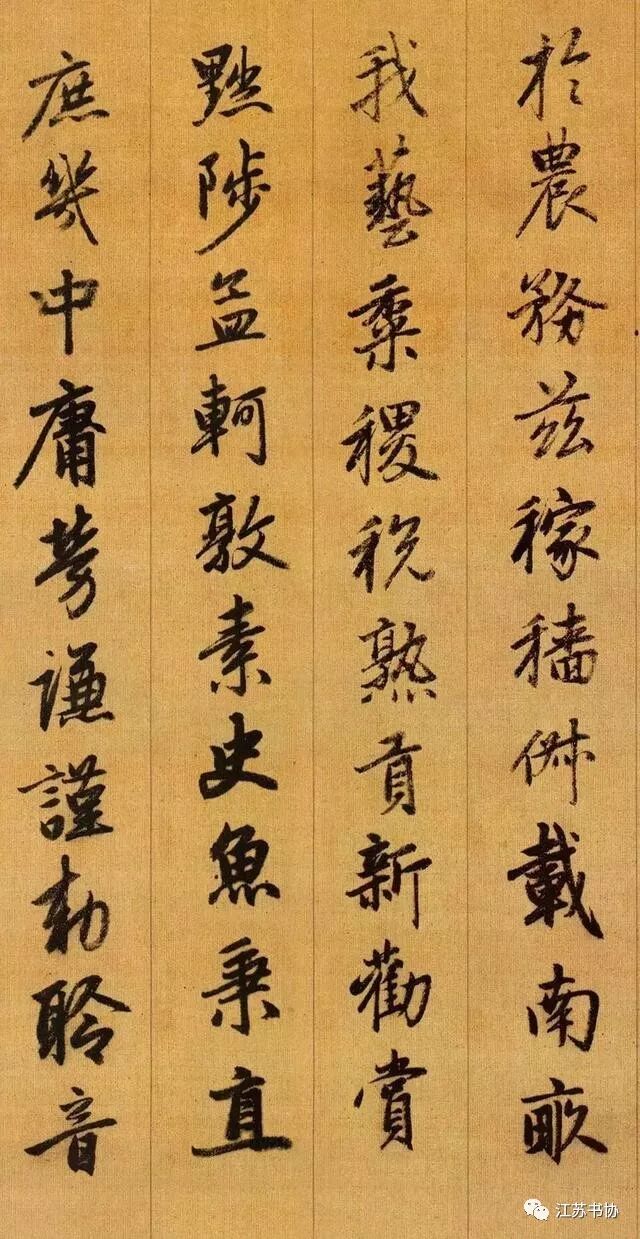 於農務茲稼穡俶載南畝
我藝黍稷稅熟貢新勸賞
黜陟孟軻敦素史魚秉直
庶幾中庸勞謙謹勑聆音
江苏书协